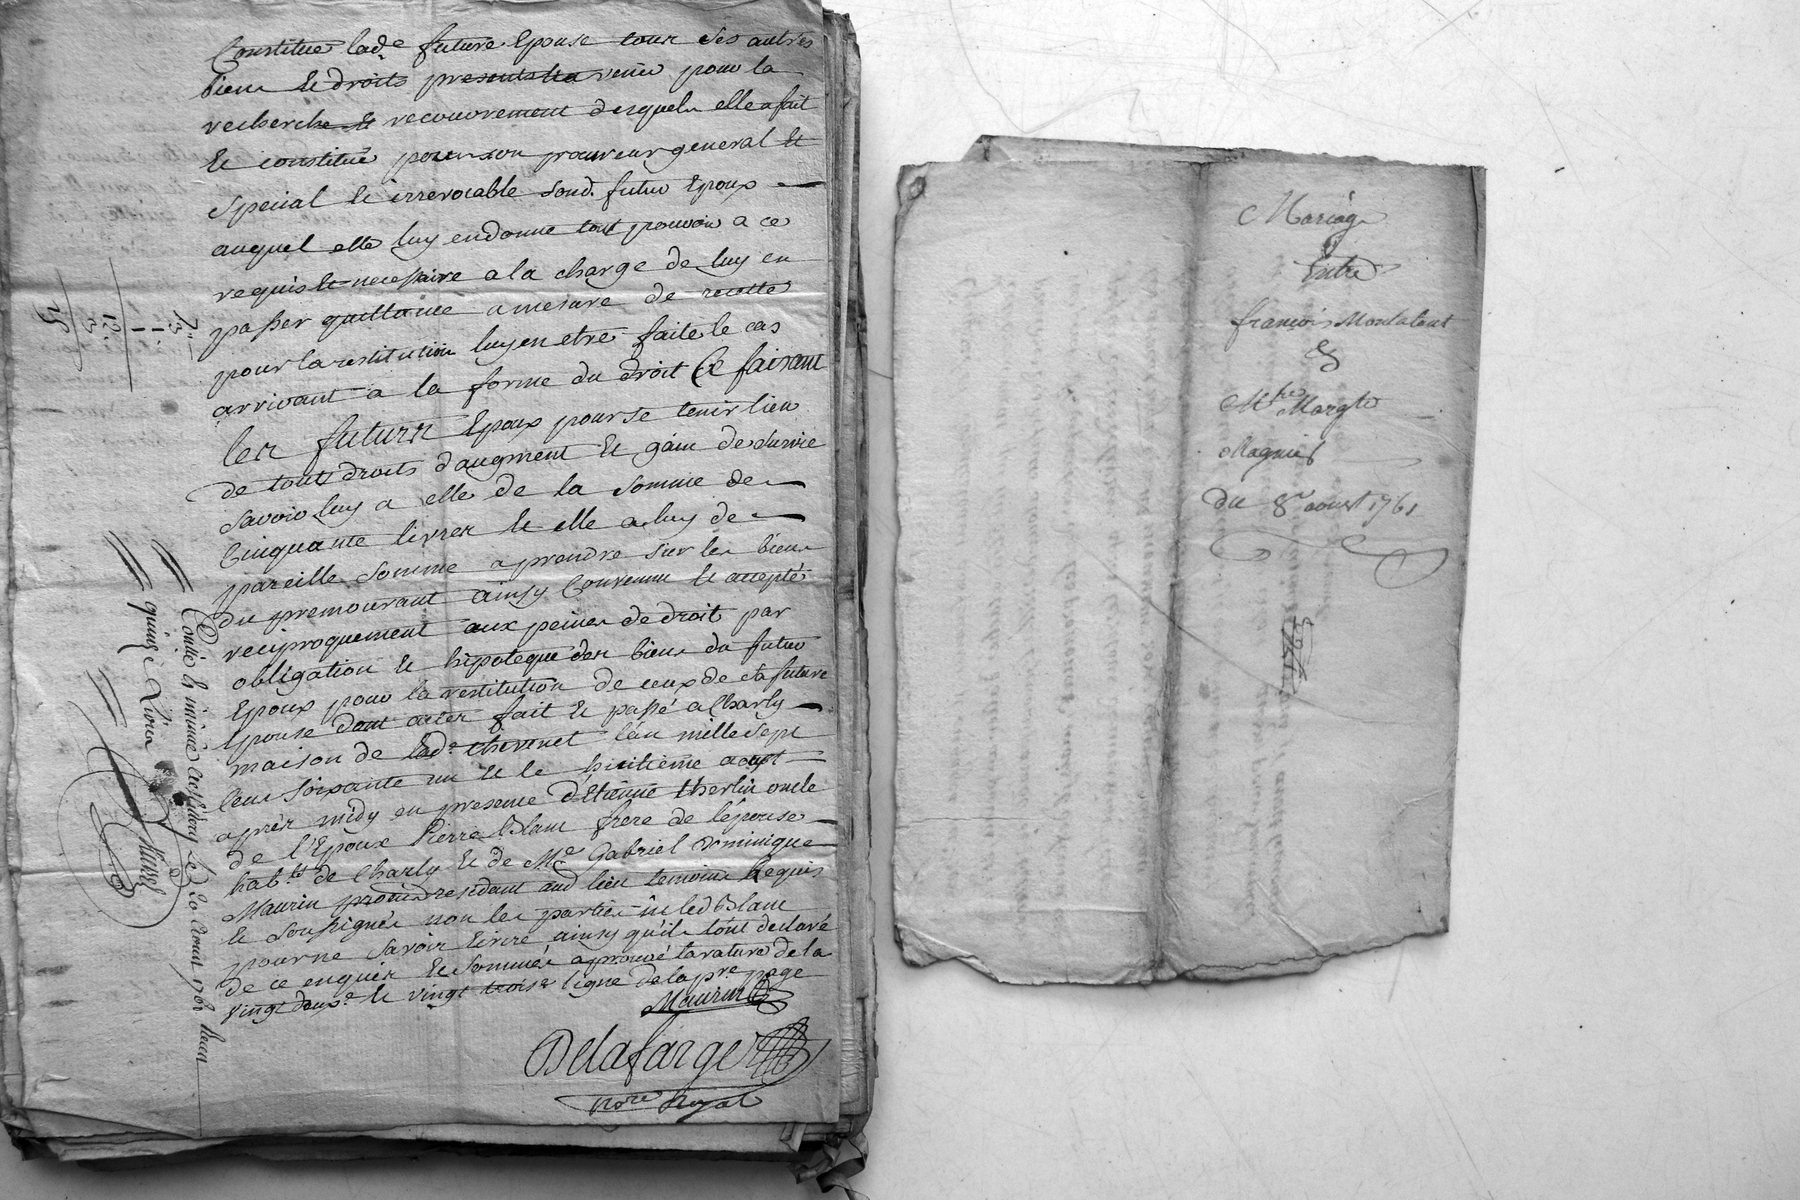 Constitue lad.e future Epouse tous ses autres
biens et droits presents et a venir pour la
recherche et recouvrement desquels elle a fait
et constitué pour son procureur general et
special et irrevocable sond. futur Epoux
auquel elle luy en donne tout pouvoir a ce
requis et necessaire a la charge de luy en
passer quittance a mesure de recette
pour la restitution luy en etre faite le cas
arrivant a la forme du droit Ce faisant
les futurs Epoux pour se tenir lieu
de touts droits d'augment et gain de survie
savoir luy a elle de la somme de
Cinquante livres et elle a luy de
pareille somme a prendre sur les biens
du premourant ainsy Convenu et accepté
reciproquement aux peines de droit par
obligation et hipoteque des biens du futur
Epoux pour la restitution de ceux de sa future
Epouse dont acte fait et passé a Charly
maison de lad.e thevenet l'an mille sept
cens soixante un et le huitieme aoust
apres midy en presence d'Etienne therlin oncle
de l'Epoux Pierre Blanc frere de l'épouse
hab.ts de Charly et de Me Gabriel Dominique
Maurin residant aud lieu temoins Requis
et soussignés non les parties ni led Blanc
pour ne savoir Ecrire ainsy qu'ils l'ont declaré
de ce enquis et sommés aprouvé la rature de la
vingt deux.e et vingt trois.e ligne de la p.re page
Maurin
Delafarge
no.re Royal
12
3
15
quinze Livres
Mariage
Entre
françois Montaland
&
Margte
Magnie
Du 8e aoust 1761